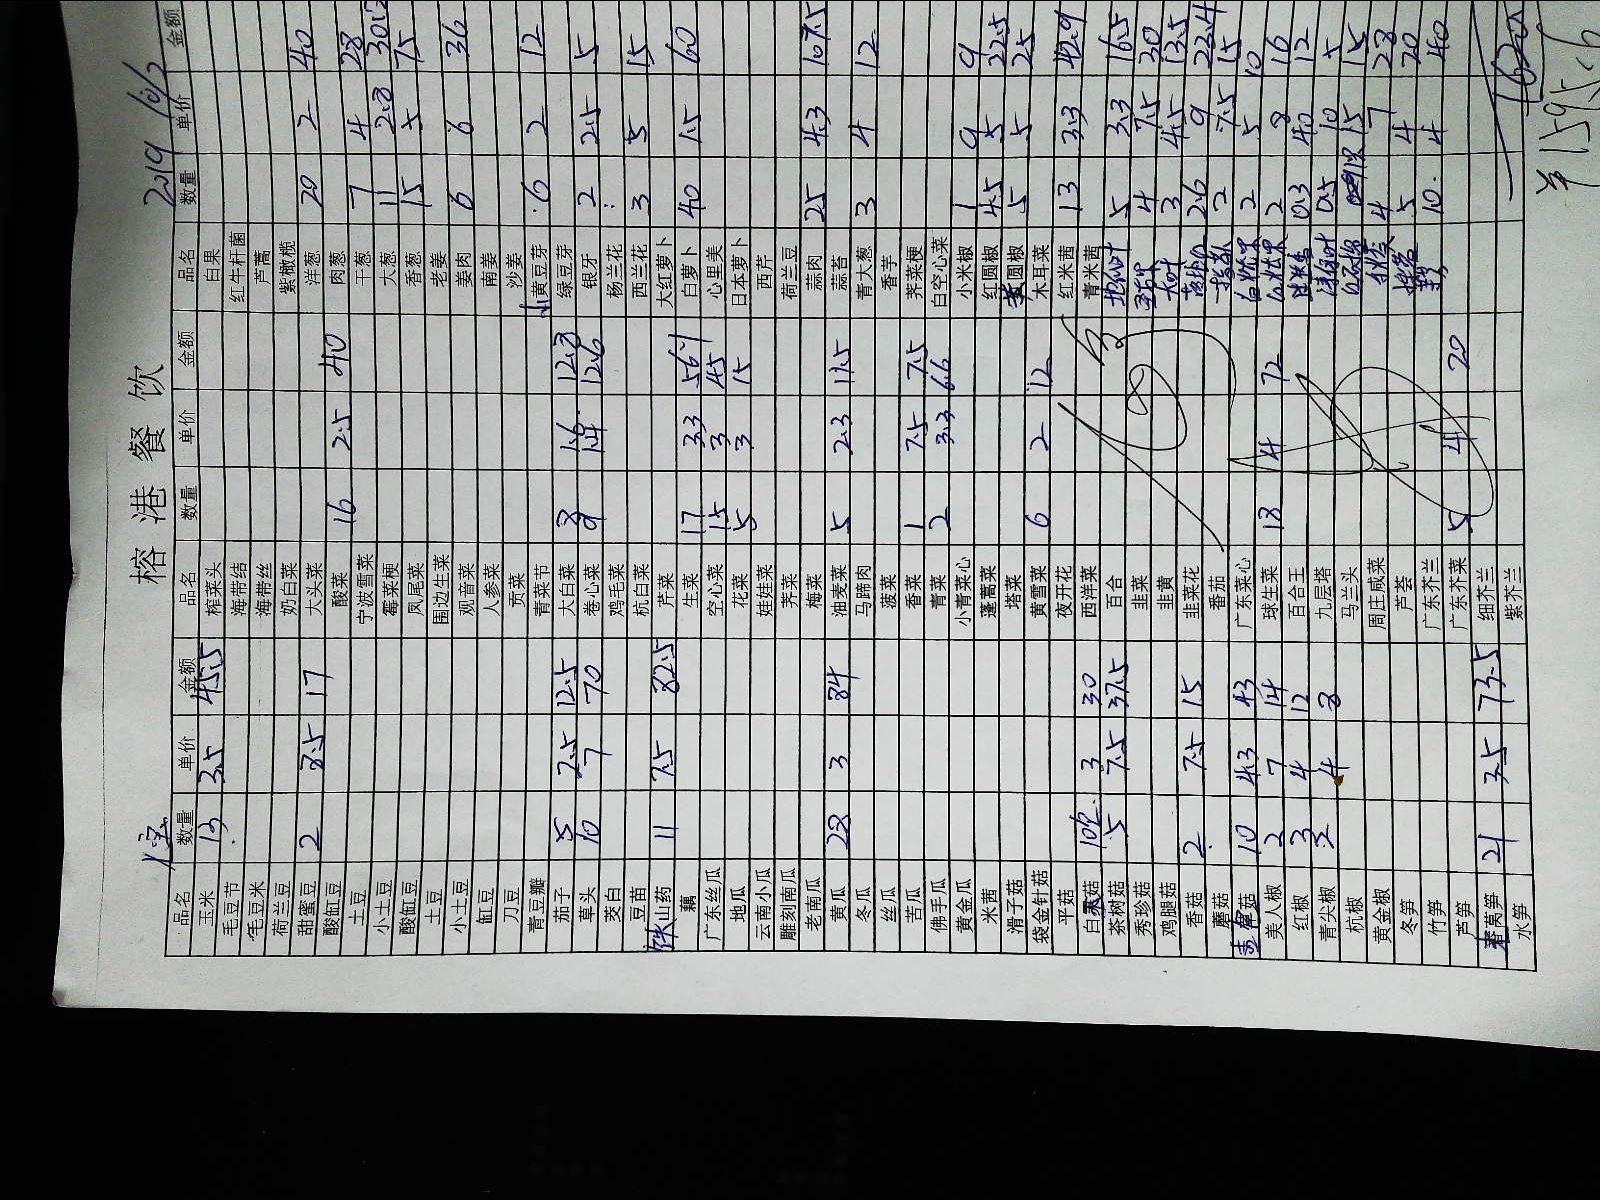 榕港餐饮
2019 10/2
品名 数量 单价 金额 品名 数量 单价 金额 品名 数量 单价 金额
玉米 13 3.5 45.5 榨菜头 白果
毛豆节 海带结 红牛杆菌
毛豆米 海带丝 芦蒿
荷兰豆 奶白菜 紫橄榄
甜蜜豆 2 8.5 17 大头菜 洋葱 20 2 40
酸缸豆 酸菜 16 2.5 40 肉葱
土豆 宁波雪菜 干葱 7 4 28
小土豆 霉菜梗 大葱 11 2.8 30.8
酸缸豆 凤尾菜 香葱 15 5 75
土豆 围边生菜 老姜
小土豆 观音菜 姜肉 6 6 36
缸豆 人参菜 南姜
刀豆 贡菜 沙姜
青豆瓣 青菜节 黄豆芽 6 2 12
茄子 5 2.5 12.5 大白菜 8 1.6 12.8 绿豆芽
草头 10 7 70 卷心菜 9 1.4 12.6 银牙 2 2.5 5
茭白 鸡毛菜 杨兰花
豆苗 杭白菜 西兰花 3 5 15
铁山药 11 7.5 82.5 芹菜 大红萝卜
藕 生菜 17 3.3 56.1 白萝卜 40 1.5 60
广东丝瓜 空心菜 15 3 45 心里美
地瓜 花菜 5 3 15 日本萝卜
云南小瓜 娃娃菜 西芹
雕刻南瓜 荠菜 荷兰豆
老南瓜 梅菜 蒜肉 25 4.3 107.5
黄瓜 28 3 84 油麦菜 5 2.3 11.5 蒜苔
冬瓜 马蹄肉 青大葱 3 4 12
丝瓜 菠菜 香芋
苦瓜 香菜 1 7.5 7.5 荠菜梗
佛手瓜 青菜 2 3.3 6.6 白空心菜
黄金瓜 小青菜心 小米椒 1 9 9
米茜 蓬蒿菜 红圆椒 4.5 5 22.5
滑子菇 塔菜 黄圆椒 5 5 25
袋金针菇 黄雪菜 6 2 12 木耳菜
平菇 夜开花 红米茜 13 3.3 42.9
白菇 10 3 30 西洋菜 青米茜
茶树菇 5 7.5 37.5 百合 5 3.3 16.5
秀珍菇 韭菜 4 7.5 30
鸡腿菇 韭黄 3 4.5 13.5
香菇 2 7.5 15 韭菜花 2.6 9 22.4
蘑菇 番茄 2 7.5 15
菇 10 4.3 43 广东菜心 2 5 10
美人椒 2 7 14 球生菜 18 4 72 2 8 16
红椒 3 4 12 百合王 0.3 40 12
青尖椒 2 4 8 九层塔 0.5 10 5
杭椒 马兰头 15 15
黄金椒 周庄咸菜 4 7 28
冬笋 芦荟 5 4 20
竹笋 广东芥兰 10 4 40
芦笋 广东芥菜 5 4 20
莴笋 21 3.5 73.5 细芥兰
水笋 紫芥兰